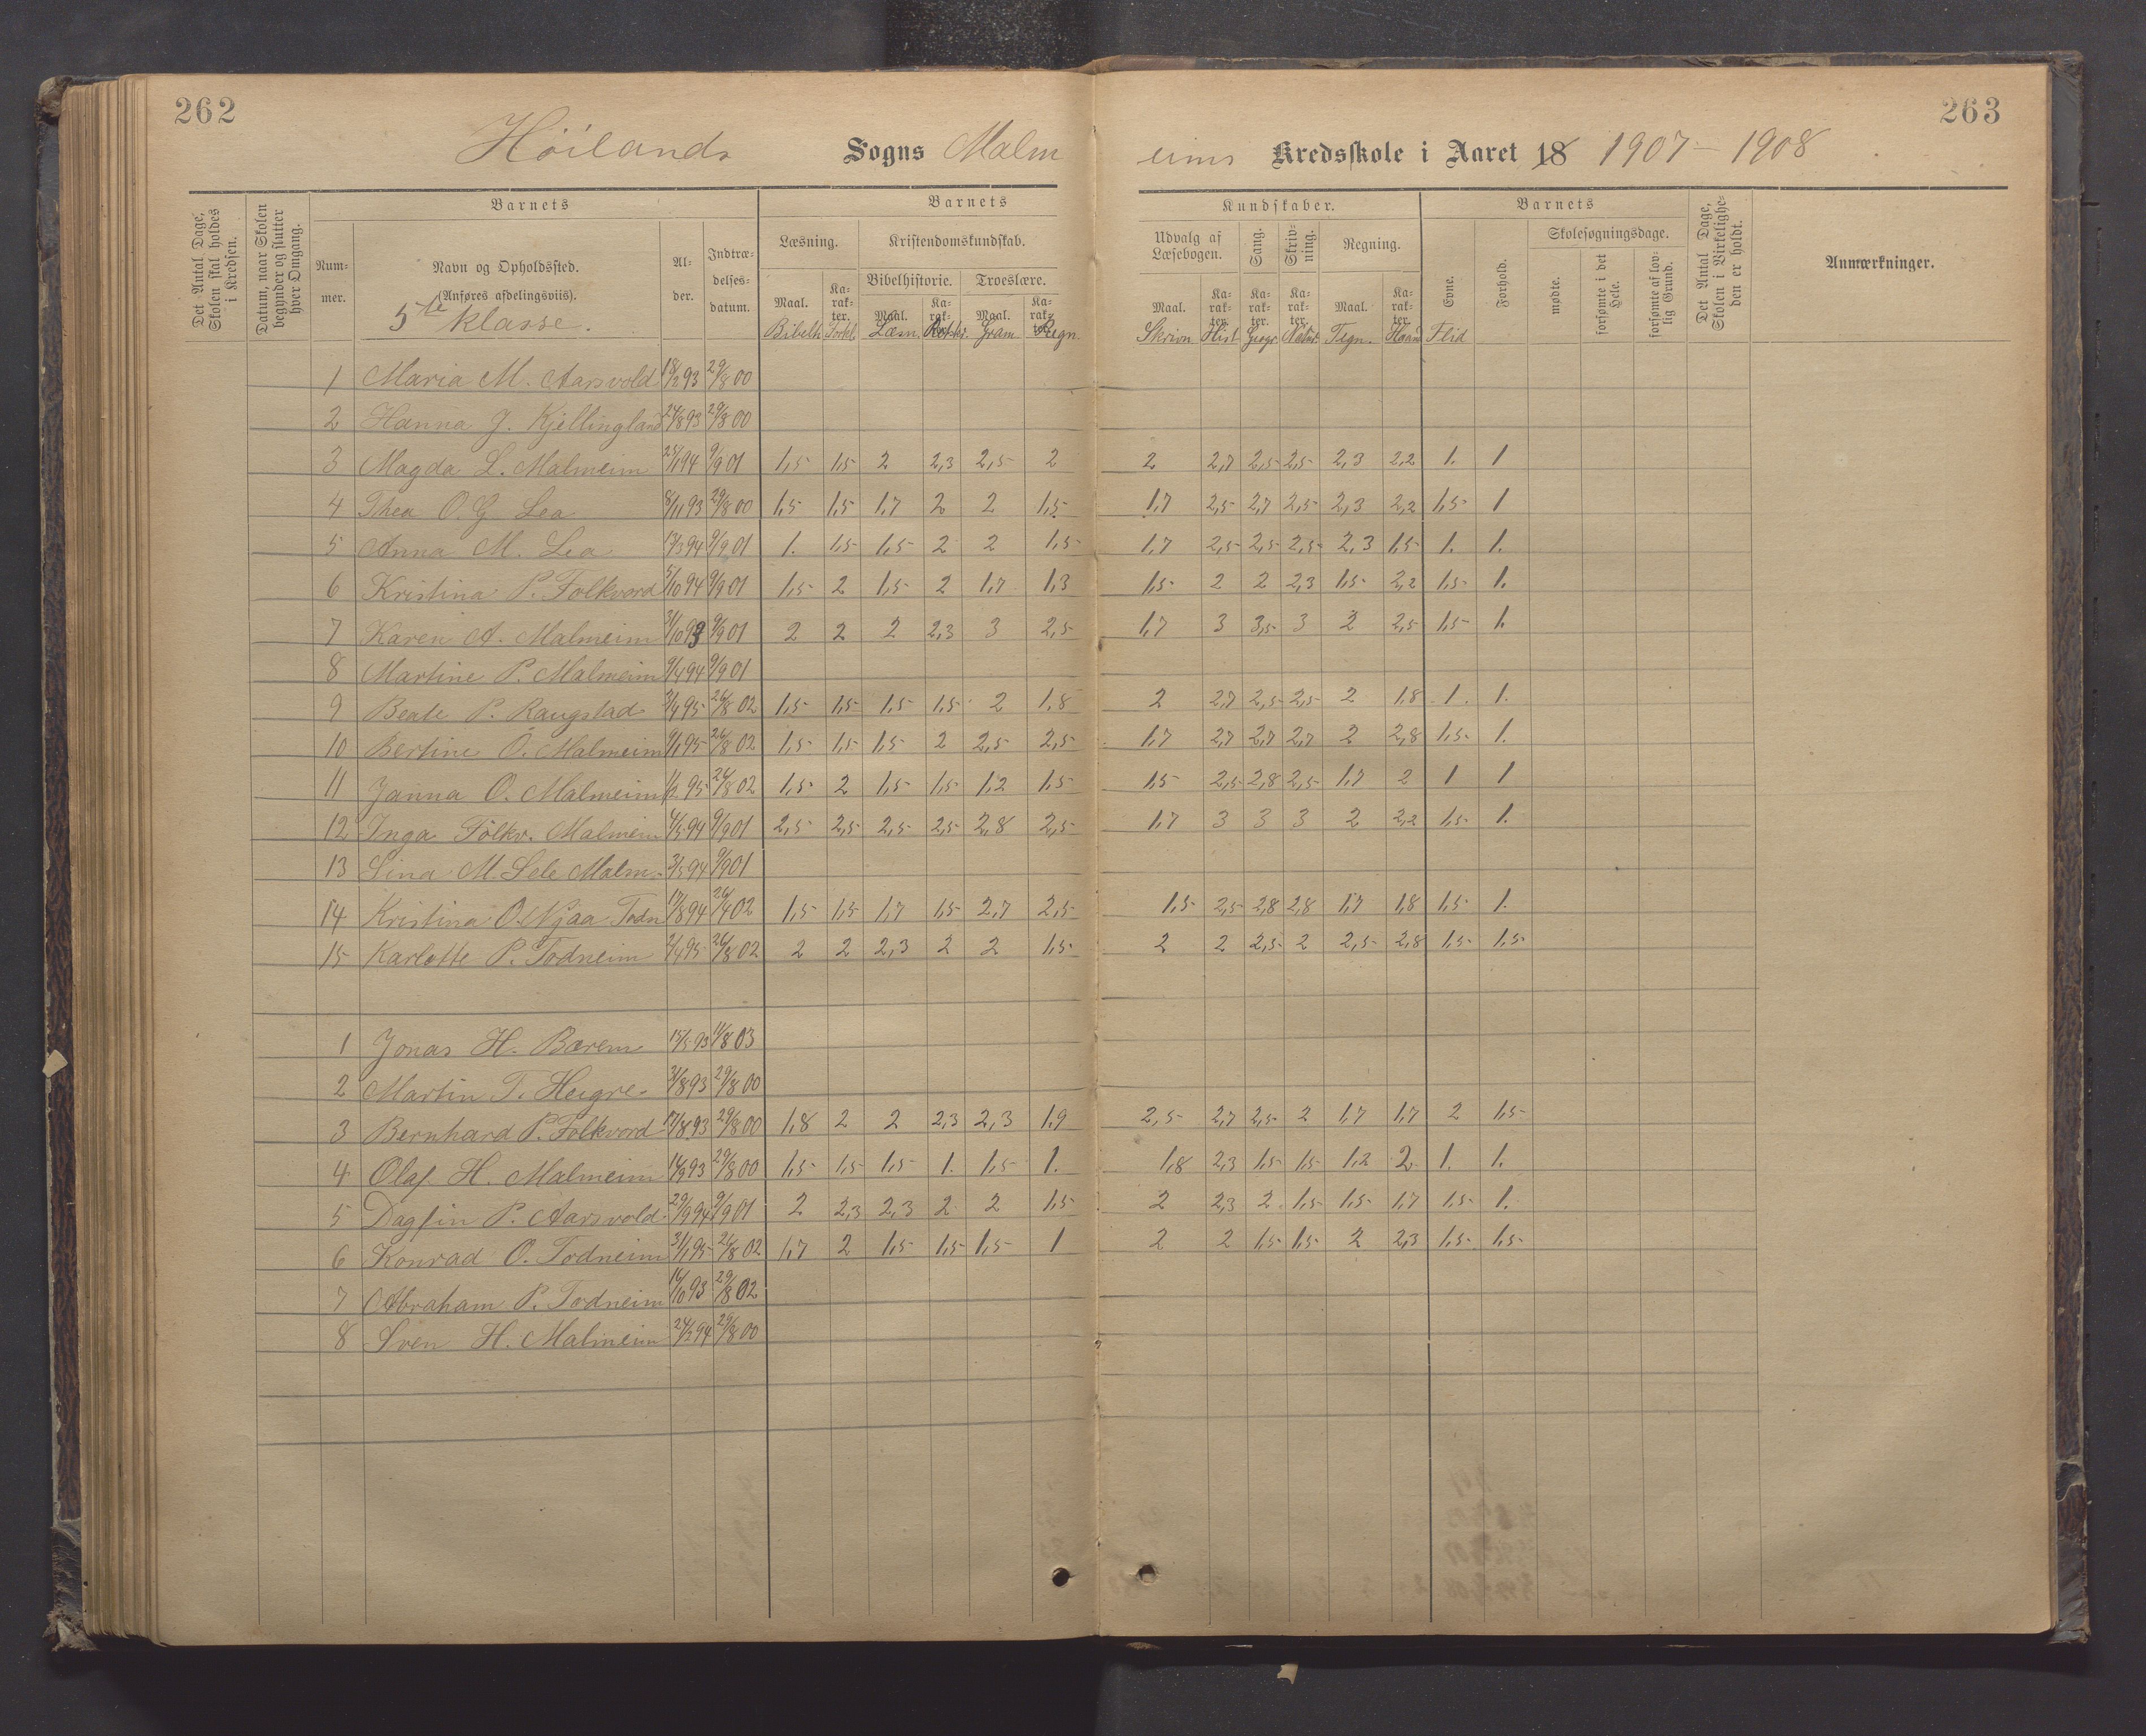 262
263
Höilands Sogns Malm eims Kredsskole i Aaret 18 1907 – 1908
Det Antal Dage, Skolen skal holdes i Kredsen.
Datum, naar Skolen begynder og slutter hver Omgang.
Barnets
Barnets
Kundskaber.
Barnets
Det Antal Dage, Skolen i Virkeligheden er holdt.
Anmærkninger.
Nummer.
Navn og Opholdssted.
(Anføres afdelingsviis).
5te klasse.
Alder.
Indtrædelsesdatum.
Læsning.
Kristendomskundskab.
Bibelhistorie.
Troeslære.
Udvalg af Læsebogen.
Sang.
Skrivning.
Regning.
Evne.
Forhold.
Skolesøgningsdage.
mødte.
forsømte i det Hele.
forsømte af lovlig Grund.
Maal. Karakter. Maal. Karakter. Maal. Karakter. Maal. Karakter. Karakter. Karakter. Maal. Karakter.
Bibelh. Forkl. Læsn. Retskr. Gram. Regn. Skrivn Hist. Geogr. Natur. Tegn. Haand Flid
1 Maria M. Aarsvold 18/12 93 29/8 00
2 Hanna J. Kjellingland 24/8 93 29/8 00
3 Magda L. Malmeim 25/1 94 9/9 01 1,5 1,5 2 2,3 2,5 2 2 2,7 2,5 2,5 2,3 2,2 1. 1
4 Thea O. G Lea 8/11 93 29/8 00 1,5 1,5 1,7 2 2 1,5 1,7 2,5 2,7 2,5 2,3 2,2 1,5 1
5 Anna M. Lea 13/3 94 9/9 01 1. 1,5 1,5 2 2 1,5 1,7 2,5 2,5 2,5 2,3 1,5 1. 1.
6 Kristina P. Folkvord 5/10 94 9/9 01 1,5 2 1,5 2 1,7 1,3 1,5 2 2 2,3 1,5 2,2 1,5 1.
7 Karen A. Malmeim 31/10 93 9/9 01 2 2 2 2,3 3 2,5 1,7 3 3,5 3 2 2,5 1,5 1.
8 Martine P. Malmeim 9/4 94 9/9 01
9 Beate P. Raugstad 3/4 95 26/8 02 1,5 1,5 1,5 1,5 2 1,8 2 2,7 2,5 2,5 2 1,8 1. 1.
10 Bertine O. Malmeim 9/1 95 26/8 02 1,5 1,5 1,5 2 2,5 2,5 1,7 2,7 2,7 2,7 2 2,8 1,5 1.
11 Janna O. Malmeim 1/2 95 26/8 02 1,5 2 1,5 1,5 1,2 1,5 1,5 2,5 2,8 2,5 1,7 2 1 1
12 Inga Folkv. Malmeim 4/5 94 9/9 01 2,5 2,5 2,5 2,5 2,8 2,5 1,7 3 3 3 2 2,2 1,5 1.
13 Lina M. Sele Malm. 3/5 94 9/9 01
14 Kristina O. Njaa Todn 17/8 94 26/4 02 1,5 1,5 1,7 1,5 2,7 2,5 1,5 2,5 2,8 2,8 1,7 1,8 1,5 1.
15 Karlotte P. Todneim 2/4 95 26/8 02 2 2 2,3 2 2 1,5 2 2 2,5 2 2,5 2,8 1,5 1,5
1 Jonas H. Bærem 15/5 93 11/8 03
2 Martin T. Heigre 31/8 93 29/8 00
3 Bernhard P. Folkvord 17/8 93 29/8 00 1,8 2 2 2,3 2,3 1,9 2,5 2,7 2,5 2 1,7 1,7 2 1,5
4 Olaf H. Malmeim 14/9 93 29/8 00 1,5 1,5 1,5 1. 1,5 1. 1,8 2,3 1,5 1,5 1,2 2 1. 1.
5 Dagfin P. Aarsvold 29/9 94 9/9 01 2 2,3 2,3 2 2 1,5 2 2,3 2 1,5 1,5 1,7 1,5 1.
6 Konrad O. Todneim 31/1 95 26/8 02 1,7 2 1,5 1,5 1,5 1 2 2 1,5 1,5 2 2,3 1,5 1,5
7 Abraham P. Todneim 14/10 93 29/8 02
8 Sven H. Malmeim 24/2 94 29/8 00